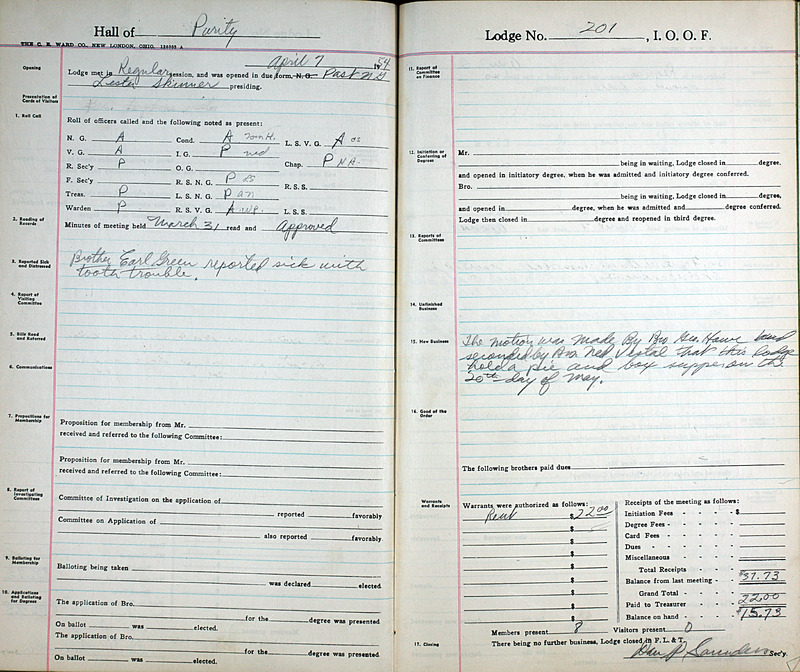 Hall of Purity
THE C. E. WARD CO., NEW LONDON, OHIO.
April 7 1954
Opening
Lodge met in Regular session, and was opened in due form, N. G. Past N.G
Lester Skinner presiding.
Presentation of Cards of Visitors
1. Roll Call
Roll of officers called and the following noted as present:
N. G. A Cond. A Tom H. L. S. V. G. A
V. G. A I. G. P ned Chap. P N.A.
R. Sec'y P O. G.
F. Sec'y R. S. N. G. P R. S. S.
Treas. P L. S. N. G. P an
Warden P R. S. V. G. A L. S. S.
2. Reading of Records
Minutes of meeting held March 31 read and approved
3. Reported Sick and Distressed
Brother Earl Green reported sick with
tooth trouble.
4. Report of Visiting Committee
5. Bills Read and Referred
6. Communications
7. Propositions for Membership
Proposition for membership from Mr.
received and referred to the following Committee:
Proposition for membership from Mr.
received and referred to the following Committee:
8. Report of Investigating Committees
Committee of Investigation on the application of
reported favorably
Committee on Application of
also reported favorably
9. Balloting for Membership
Balloting being taken
was declared elected.
10. Applications and Balloting for Degrees
The application of Bro.
for the degree was presented
On ballot was elected.
The application of Bro.
for the degree was presented
On ballot was elected.
Lodge No. 201, I. O. O. F.
11. Report of Committee on Finance
12. Initiation or Conferring of Degrees
Mr.
being in waiting, Lodge closed in degree.
and opened in initiatory degree, when he was admitted and initiatory degree conferred.
Bro.
being in waiting, Lodge closed in degree,
and opened in degree, when he was admitted and degree conferred.
Lodge then closed in degree and reopened in third degree.
13. Reports of Committees
14. Unfinished Business
15. New Business
The motion was made By Bro Geo. Howe and
seconded by Bro. Ned Vestal that this lodge
hold a pie and box supper on the
20th day of May.
16. Good of the Order
The following brothers paid dues
Warrants and Receipts
Warrants were authorized as follows:
Rent $22.00
$
$
$
$
$
$
$
Receipts of the meeting as follows:
Initiation Fees - - - - $
Degree Fees - - - -
Card Fees - - - -
Dues - - - -
Miscellaneous
Total Receipts
Balance from last meeting - $37.73
Grand Total - -
Paid to Treasurer - - - 22.00
Balance on hand - - - $15.73
Members present 8 Visitors present 0
17. Closing
There being no further business, Lodge closed in F. L. & T.
Saunders Sec'y.